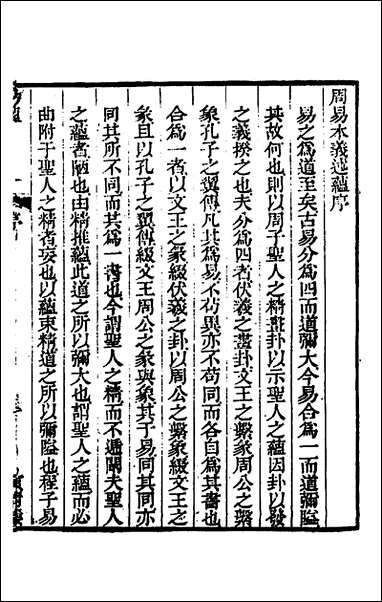 周易本義述蘊序
易之為道至矣古易分為四而道彌大今易合為一而道彌隘
其故何也則以周子聖人之精畫卦以示聖人之蘊因卦以發
之義揆之也夫分為四者伏羲之畫卦文王之繫彖周公之繫
象孔子之翼傳凡其為易不苟異亦不苟同而各自為其書也
合為一者以文王之彖綴伏羲之卦以周公之繫象綴文王之
彖且以孔子之翼傳綴文王周公之彖與象其于易同其同亦
同其所不同而其為一書也今謂聖人之精而不遞闡夫聖人
之蘊者陋也由精推蘊此道之所以彌大也謂聖人之蘊而必
曲附于聖人之精者妄也以蘊束精道之所以彌隘也程子易
序